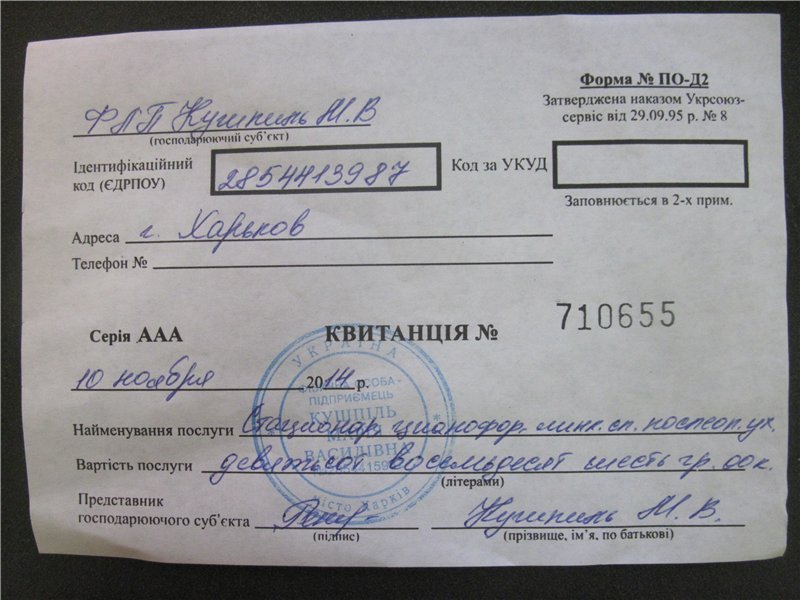 Форма № ПО-Д2
Затверджена наказом Укрсоюз-
сервіс від 29.09.95 р. № 8
ФЛП Кушпиль М.В
(господарюючий суб'єкт)
Ідентифікаційний
код (ЄДРПОУ) 2854413987 Код за УКУД
Заповнюється в 2-х прим.
Адреса г. Харьков
Телефон №
Серія ААА КВИТАНЦІЯ № 710655
10 ноября 2014 р.
УКРАЇНА
ОСОБА-
ПІДПРИЄМЕЦЬ
КУШПІЛЬ
ВАСИЛІВНА
місто Харків
Найменування послуги Стационар,
Вартість послуги девятьсот восемьдесят шесть гр. оок.
(літерами)
Представник
господарюючого суб'єкта Кушпиль М. В.
(підпис) (прізвище, ім'я, по батькові)